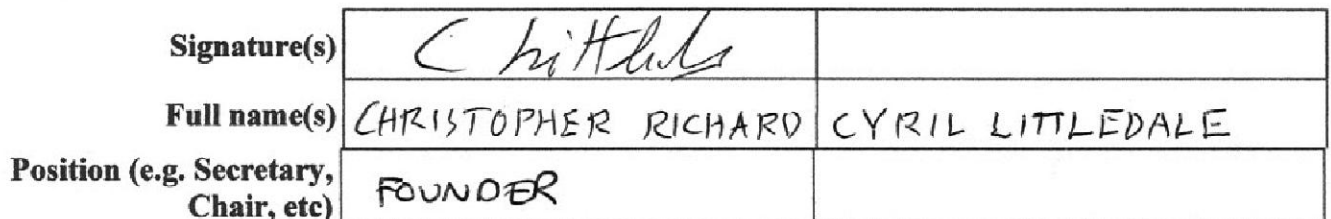 Signature(s) C Littledale
Full name(s) CHRISTOPHER RICHARD CYRIL LITTLEDALE
Position (e.g. Secretary,
Chair, etc) FOUNDER